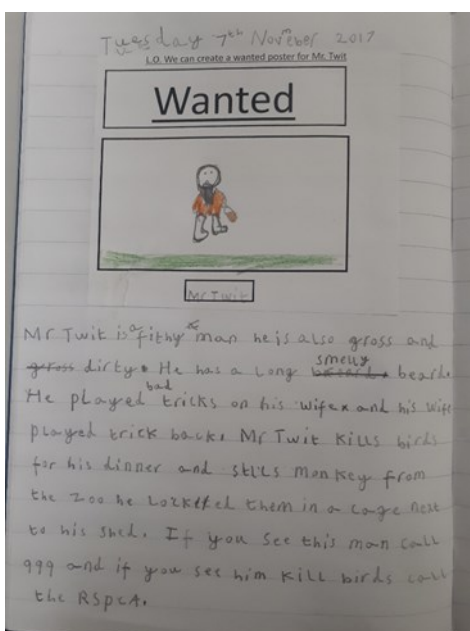 Tuesday 7th November 2017
L.O. We can create a wanted poster for Mr. Twit
Wanted
Mr Twit
Mr Twit is a fithy man he is also gross and
gross dirty. He has a long smelly beard.
He played bad tricks on his wife and his wife
played trick back. Mr Twit kills birds
for his dinner and monkey from
the zoo he them in a cage next
to his shed. If you see this man call
999 and if you see him kill birds call
the RSPCA.